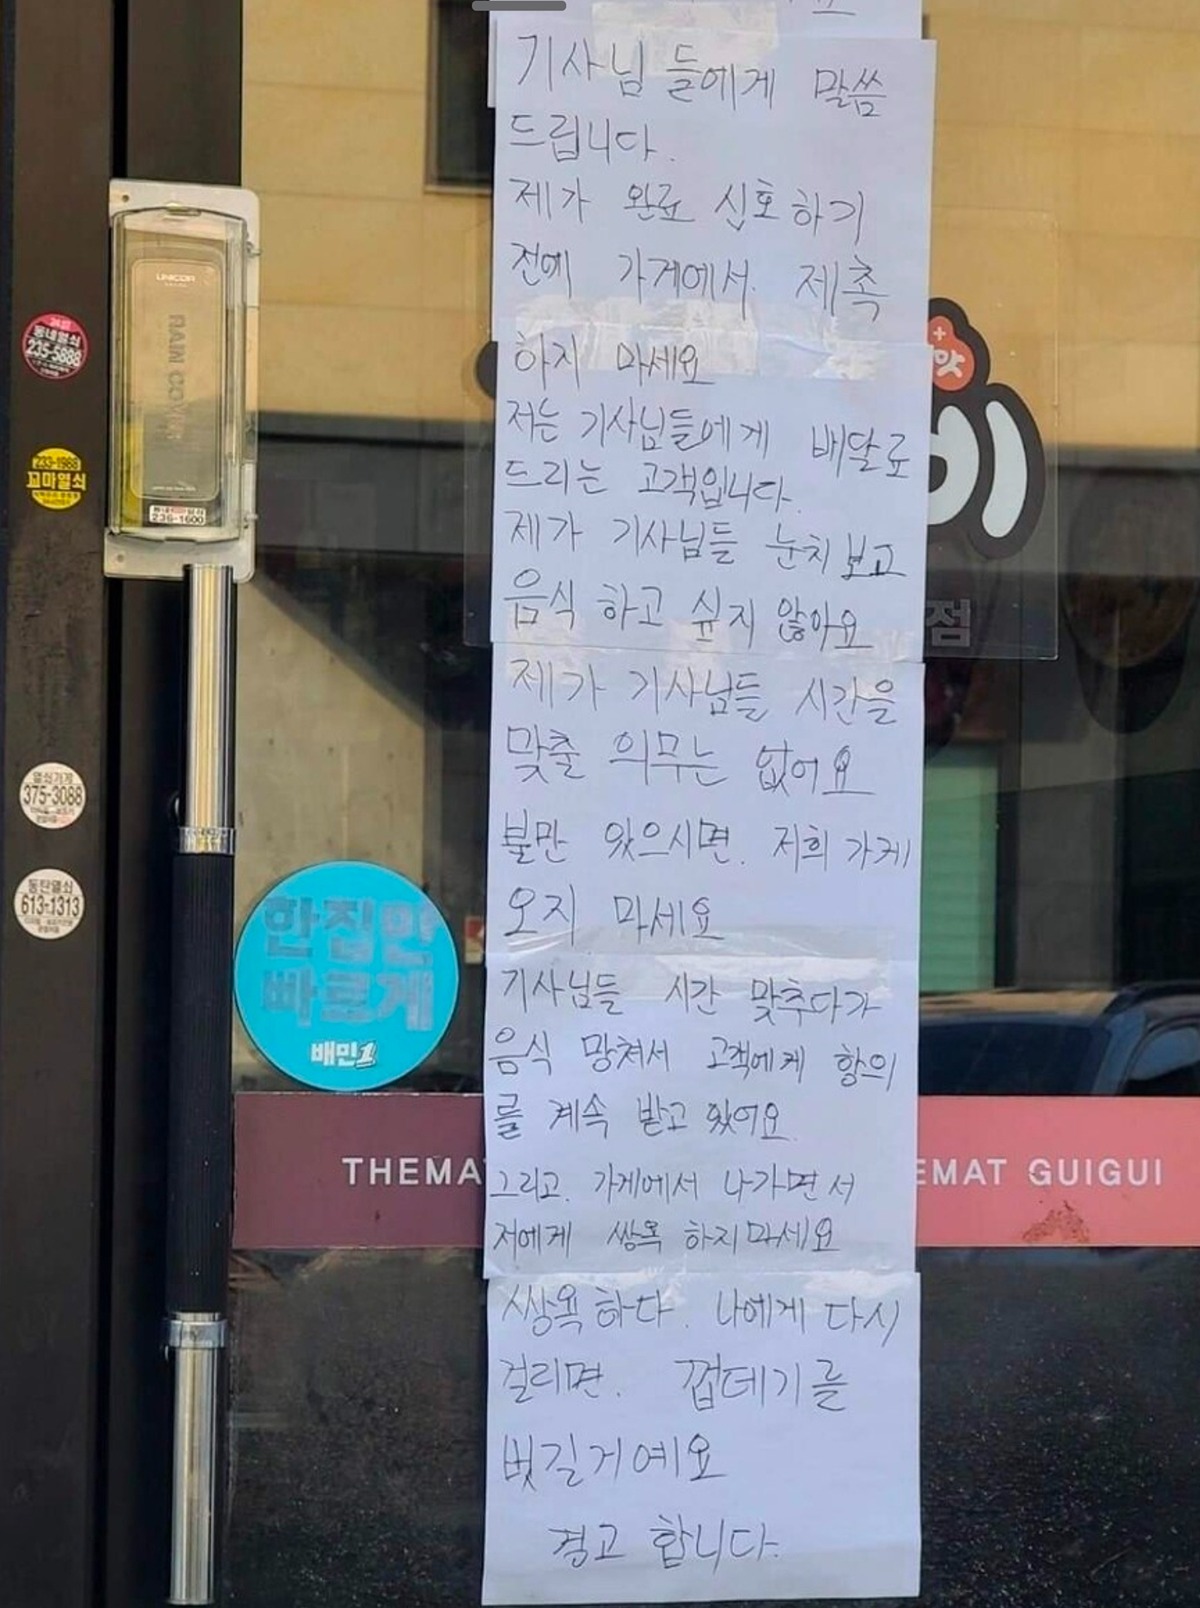 기사님 들에게 말씀
드립니다.
제가 완료 신호하기
전에 가게에서. 재촉
하지 마세요
저는 기사님들에게 배달료
드리는 고객입니다.
제가 기사님들 눈치보고
음식 하고 싶지 않아요
제가 기사님들 시간을
맞출 의무는 없어요
불만 있으시면. 저희 가게
오지 마세요
기사님들 시간 맞추다가
음식 망쳐서 고객에게 항의
를 계속 받고 있어요.
그리고. 가게에서 나가면서
저에게 쌍욕 하지마세요
쌍욕하다. 나에게 다시
걸리면. 껍데기를
벗길거예요
경고 합니다.
UNICOR
236-1600
동네열쇠
235-5888
233-1988
꼬마열쇠
열쇠가게
375-3088
동탄열쇠
613-1313
한집만
빠르게
배민1
맛
점
THEMA
EMAT GUIGUI